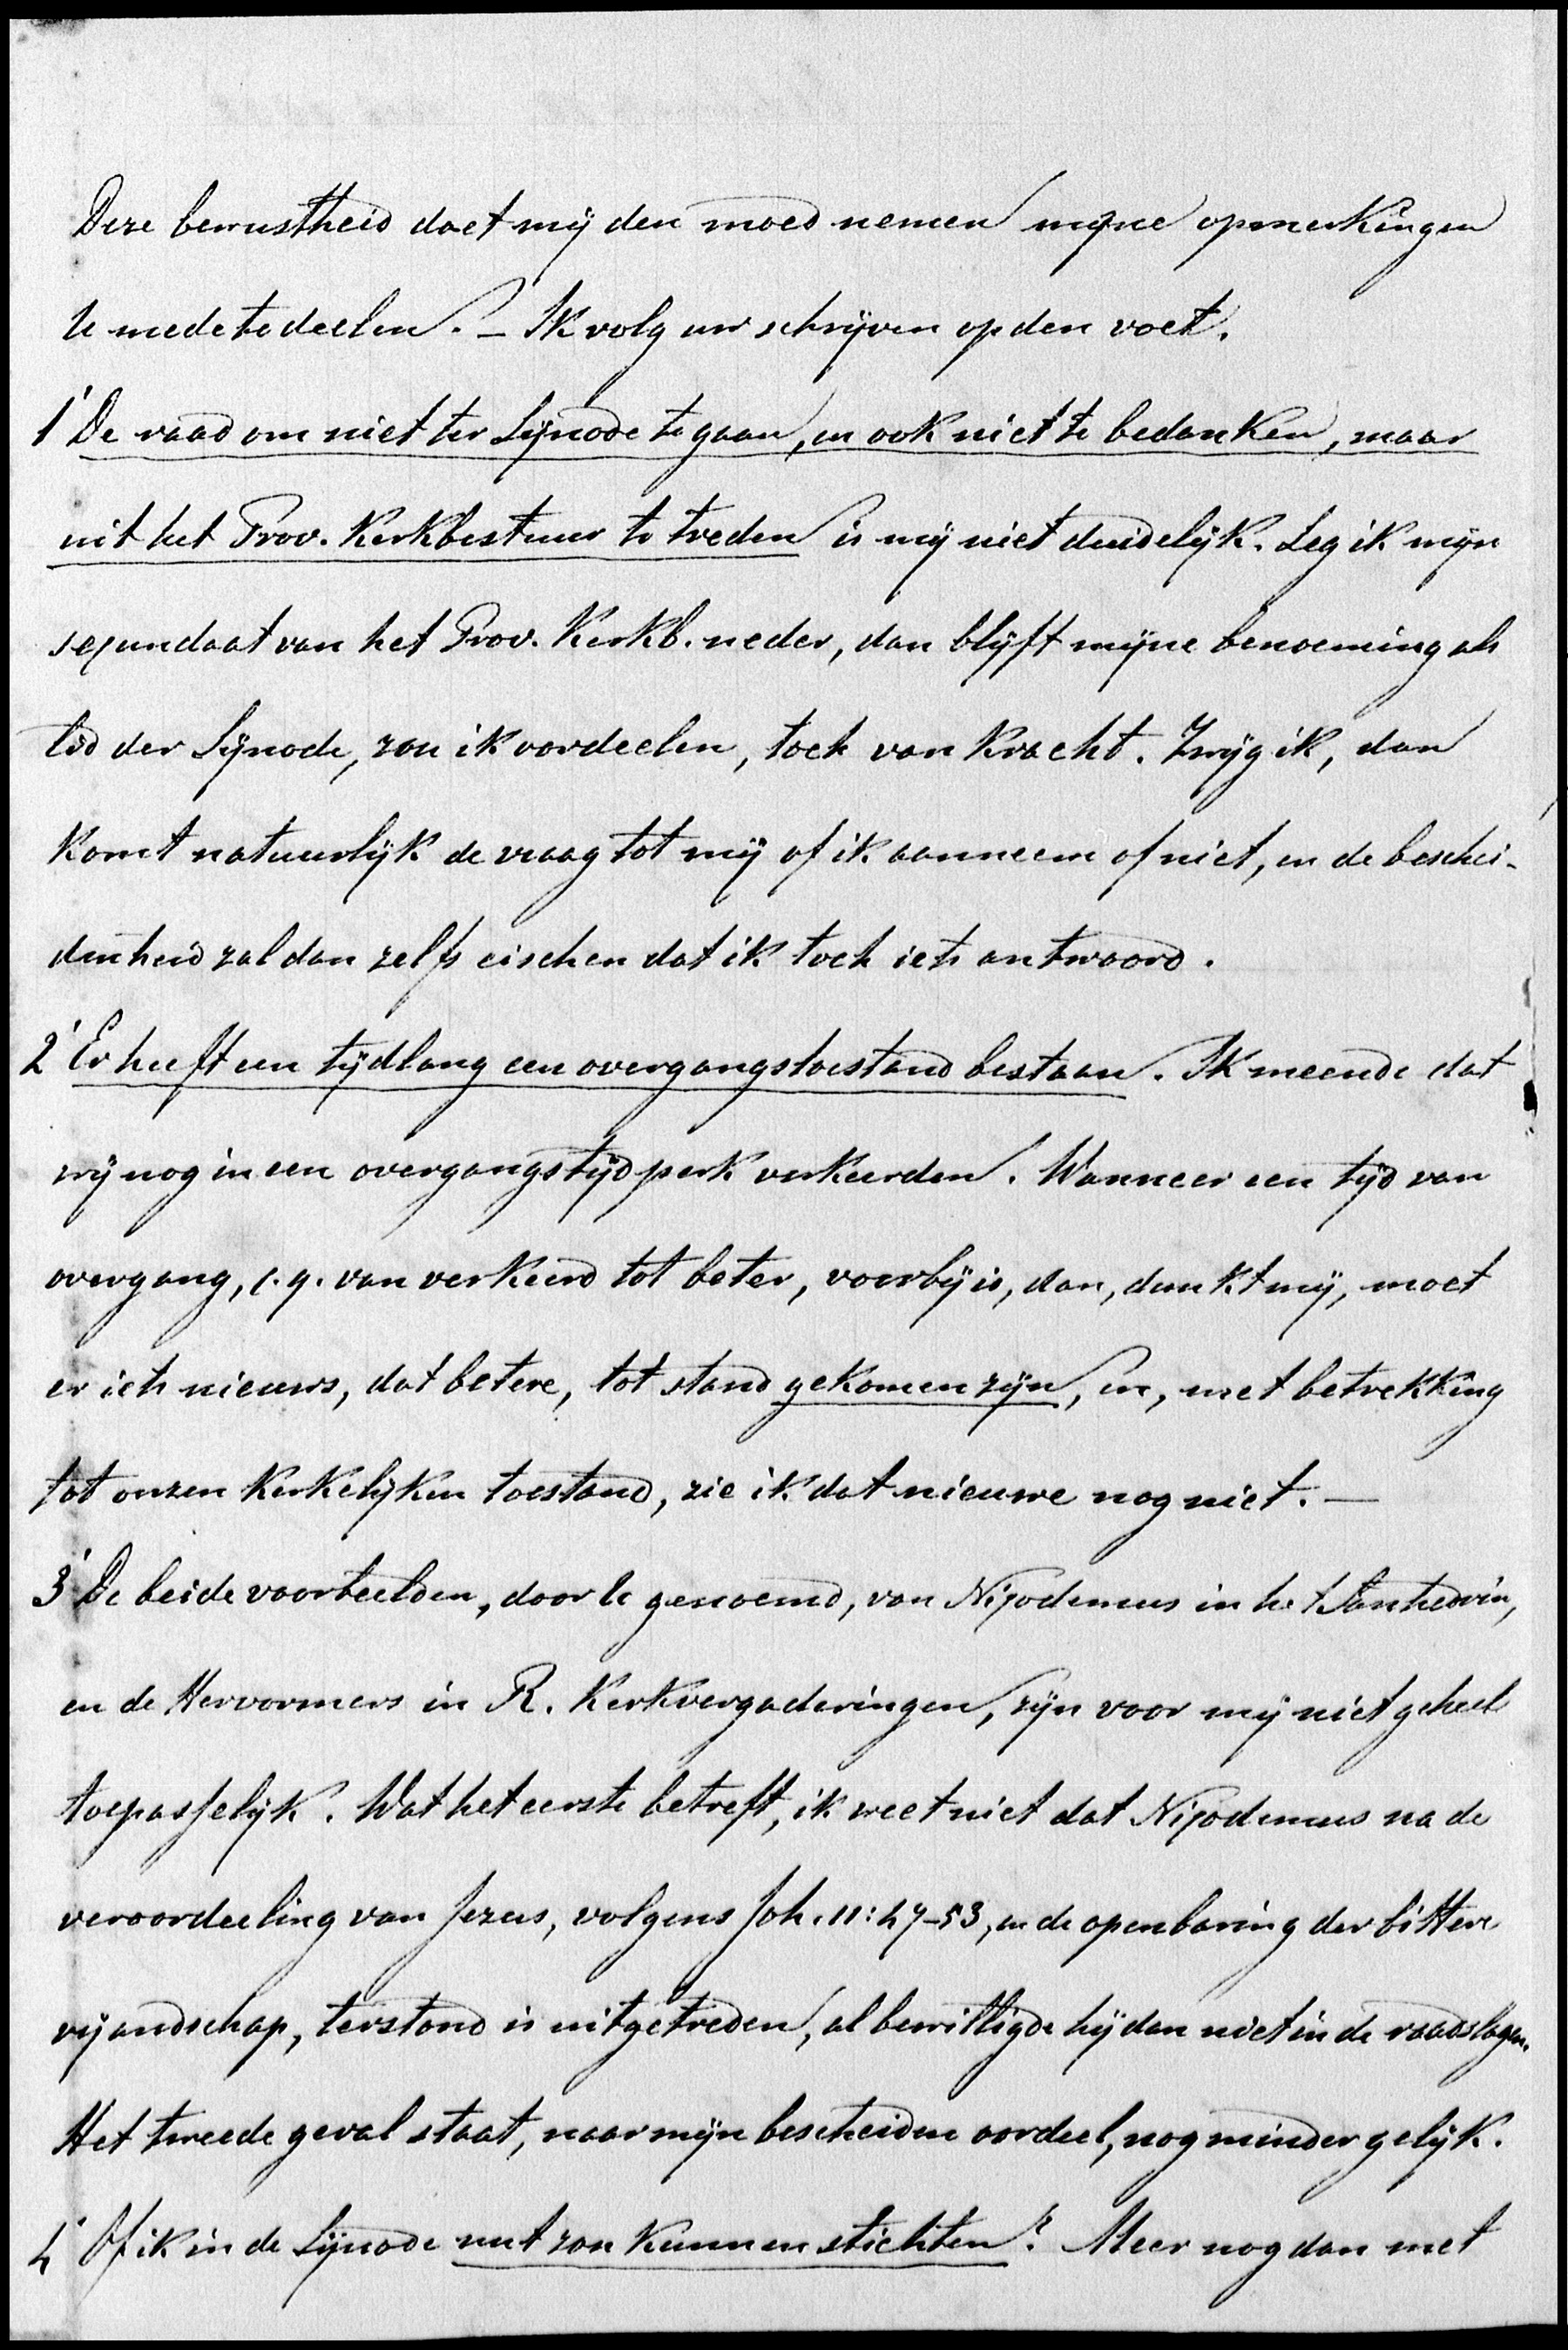 Deze bewustheid doet mij den moed nemen mijne opmerkingen
U mede te deelen. – Ik volg uw schrijven op den voet.
1° De raad om niet ter Synode te gaan, en ook niet te bedanken, maar
uit het Prov. Kerkbestuur te treden is mij niet duidelijk. Leg ik mijn
secundaat van het Prov. Kerkb. neder, dan blijft mijne benoeming als
lid der Synode, zou ik oordeelen, toch van kracht. Zwijg ik, dan
komt natuurlijk de vraag tot mij of ik aanneem of niet, en de beschei-
denheid zal dan zelfs eischen dat ik toch iets antwoord.
2° Er heeft een tijdlang een overgangstoestand bestaan. Ik meende dat
wij nog in een overgangstijdperk verkeerden. Wanneer een tijd van
overgang, c.q. van verkeerd tot beter, voorbij is, dan, dunkt mij, moet
er iets nieuws, dat betere, tot stand gekomen zijn, en, met betrekking
tot onzen kerkelijken toestand, zie ik dat nieuwe nog niet. —
3° De beide voorbeelden, door U genoemd, van Nicodemus in het Sanhedrin,
en de Hervormers in R. Kerkvergaderingen, zijn voor mij niet geheel
toepasselijk. Wat het eerste betreft, ik weet niet dat Nicodemus na de
veroordeeling van Jezus, volgens Joh. 11:47–53, en de openbaring der bittere
vijandschap, terstond is uitgetreden, al bewilligde hij dan niet in de raadslagen.
Het tweede geval staat, naar mijn bescheiden oordeel, nog minder gelijk.
4° Of ik in de Synode nut zou kunnen stichten? Meer nog dan met